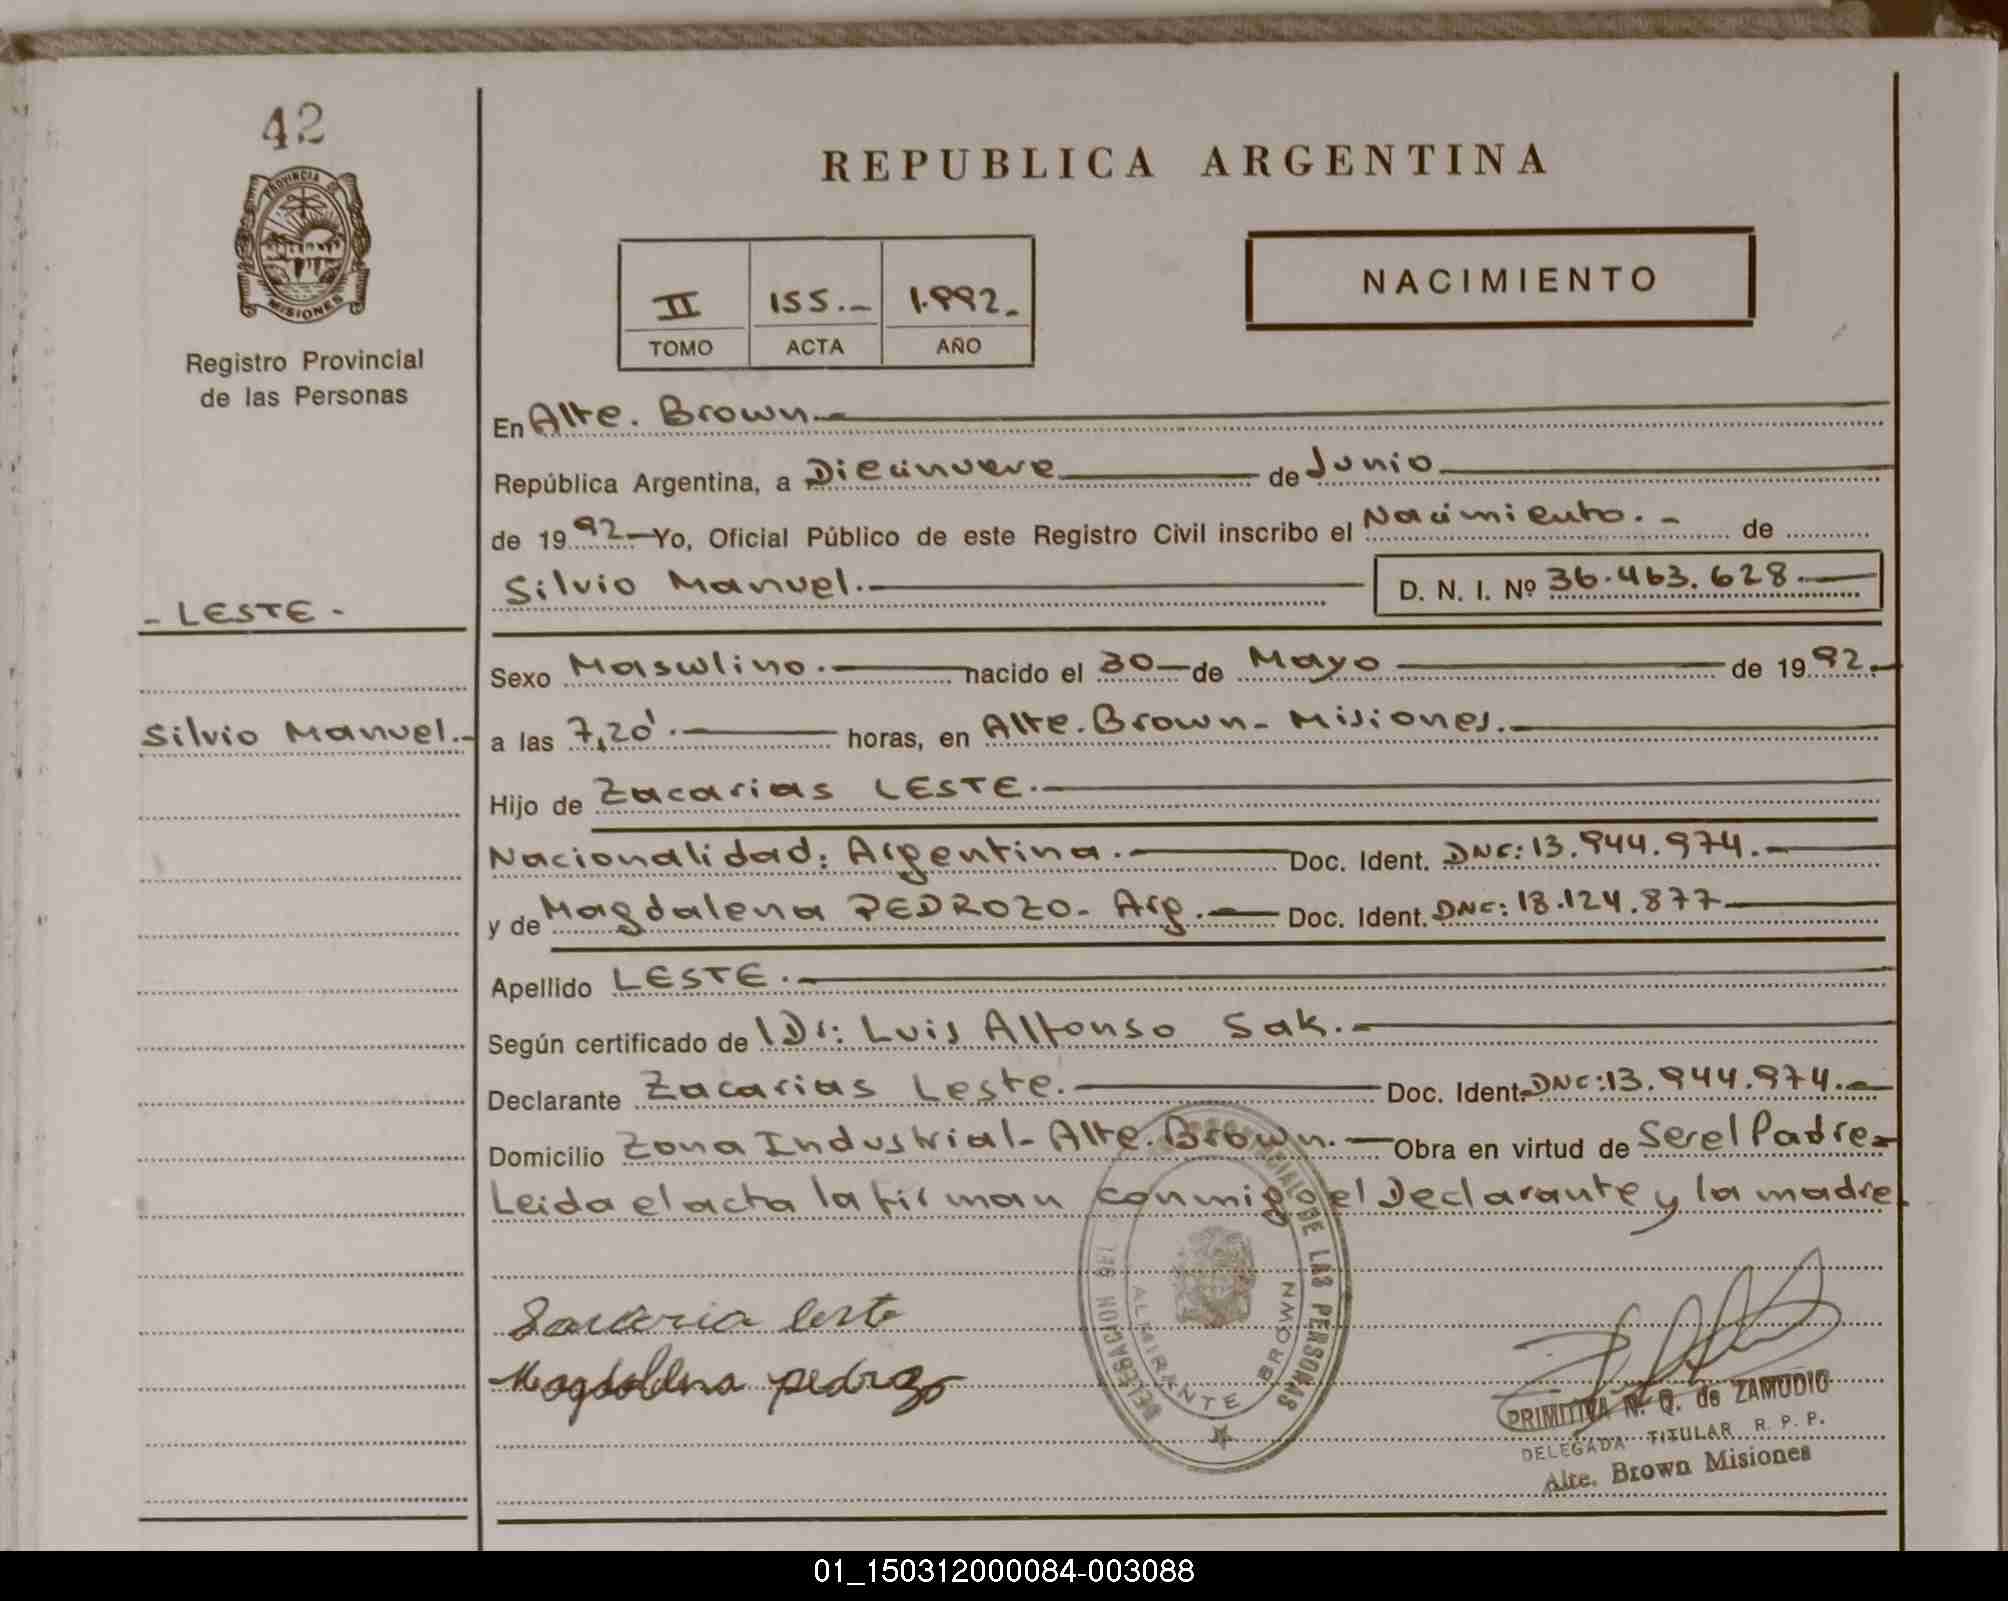 42
PROVINCIA DE
MISIONES
Registro Provincial
de las Personas
REPUBLICA ARGENTINA
II 155.- 1.992.-
TOMO ACTA AÑO
NACIMIENTO
En Alte. Brown.-
República Argentina, a Diecinueve de Junio
de 1992 Yo, Oficial Público de este Registro Civil inscribo el Nacimiento.- de
Silvio Manuel.- D. N. I. Nº 36.463.628.-
- LESTE -
Sexo Masculino.- nacido el 30 de Mayo de 1992.-
Silvio Manuel.-
a las 7,20'.- horas, en Alte. Brown- Misiones.-
Hijo de Zacarias LESTE.-
Nacionalidad: Argentina.- Doc. Ident. DNC: 13.944.974.-
y de Magdalena PEDROZO- Arg.- Doc. Ident. DNC: 18.124.877
Apellido LESTE.-
Según certificado de Dr: Luis Alfonso Sak.-
Declarante Zacarias Leste.- Doc. Ident. DNC: 13.944.974.-
Domicilio Zona Industrial- Alte. Brown.- Obra en virtud de Ser el Padre-
Leida el acta la firman conmigo el Declarante y la madre
Magdalena pedrozo
DELEGACION
DE LAS PERSONAS
ALMIRANTE BROWN
PRIMITIVA N. Q. de ZAMUDIO
DELEGADA TITULAR R. P. P.
Alte. Brown Misiones
01_150312000084-003088